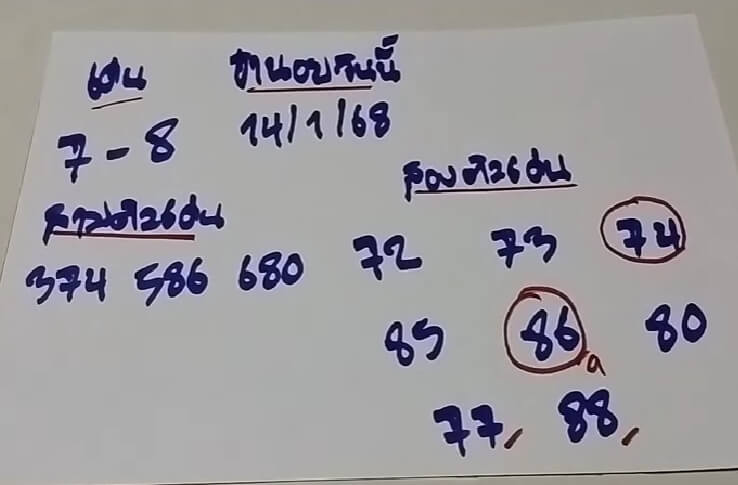 เด่น
ฮานอยวันนี้
7-8
14/1/68
สามตัวเด่น
374 586 680
สองตัวเด่น
72 73 74
85 86 80
77, 88,